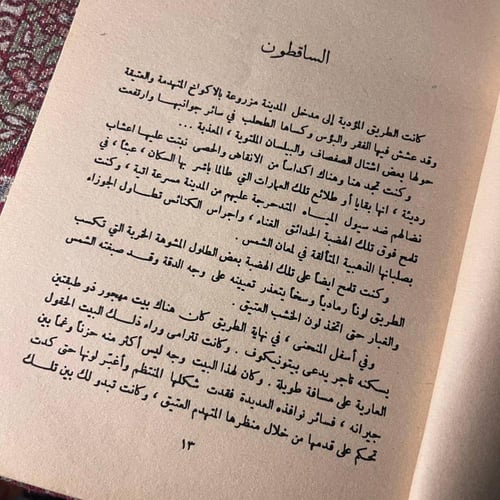 الساقطون
كانت الطريق المؤدية إلى مدخل المدينة مزروعة بالاكواخ المتهدمة والعتيقة
وقد عشش فيها الفقر والبؤس وكساها الطحلب في سائر جوانبها وارتفعت
حولها بعض اشتال الصفصاف والبيلسان الملتوية ، المعذبة ...
وكنت تجد هنا وهناك اكداساً من الانقاض والحصى نبتت عليها اعشاب
رديئة ، انها بقايا أو طلائع تلك العمارات التي طالما باشر بها السكان ، عبثاً ، في
نضالهم ضد سيول المياه المتدحرجة عليهم من المدينة مسرعة اتية ، وكنت
تلمح فوق تلك الهضبة الحدائق الغناء ، واجراس الكنائس تطاول الجوزاء
بصلبانها الذهبية المتألقة في لمعان الشمس .
وكنت تلمح ايضاً على تلك الهضبة بعض الطلول المشوهة الخربة التي تكسب
الطريق لوناً رمادياً وسخاً يتعذر تمييزه على وجه الدقة وقد صبغته الشمس
والغبار حتى اتخذ لون الخشب العتيق .
وفي أسفل المنحنى ، في نهاية الطريق كان هناك بيت مهجور ذو طبقتين
يسكنه تاجر يدعى بيتونيكوف . وكانت تترامى وراء ذلك البيت الحقول
العارية على مسافة طويلة . وكان لهذا البيت وجه ليس أكثر منه حزناً وغماً بين
جيرانه ، فسائر نوافذه العديدة فقدت شكلها المنتظم وأغبر لونها حتى كدت
تحكم على قدمها من خلال منظرها المتهدم العتيق ، وكانت تبدو لك بين تلك
١٣